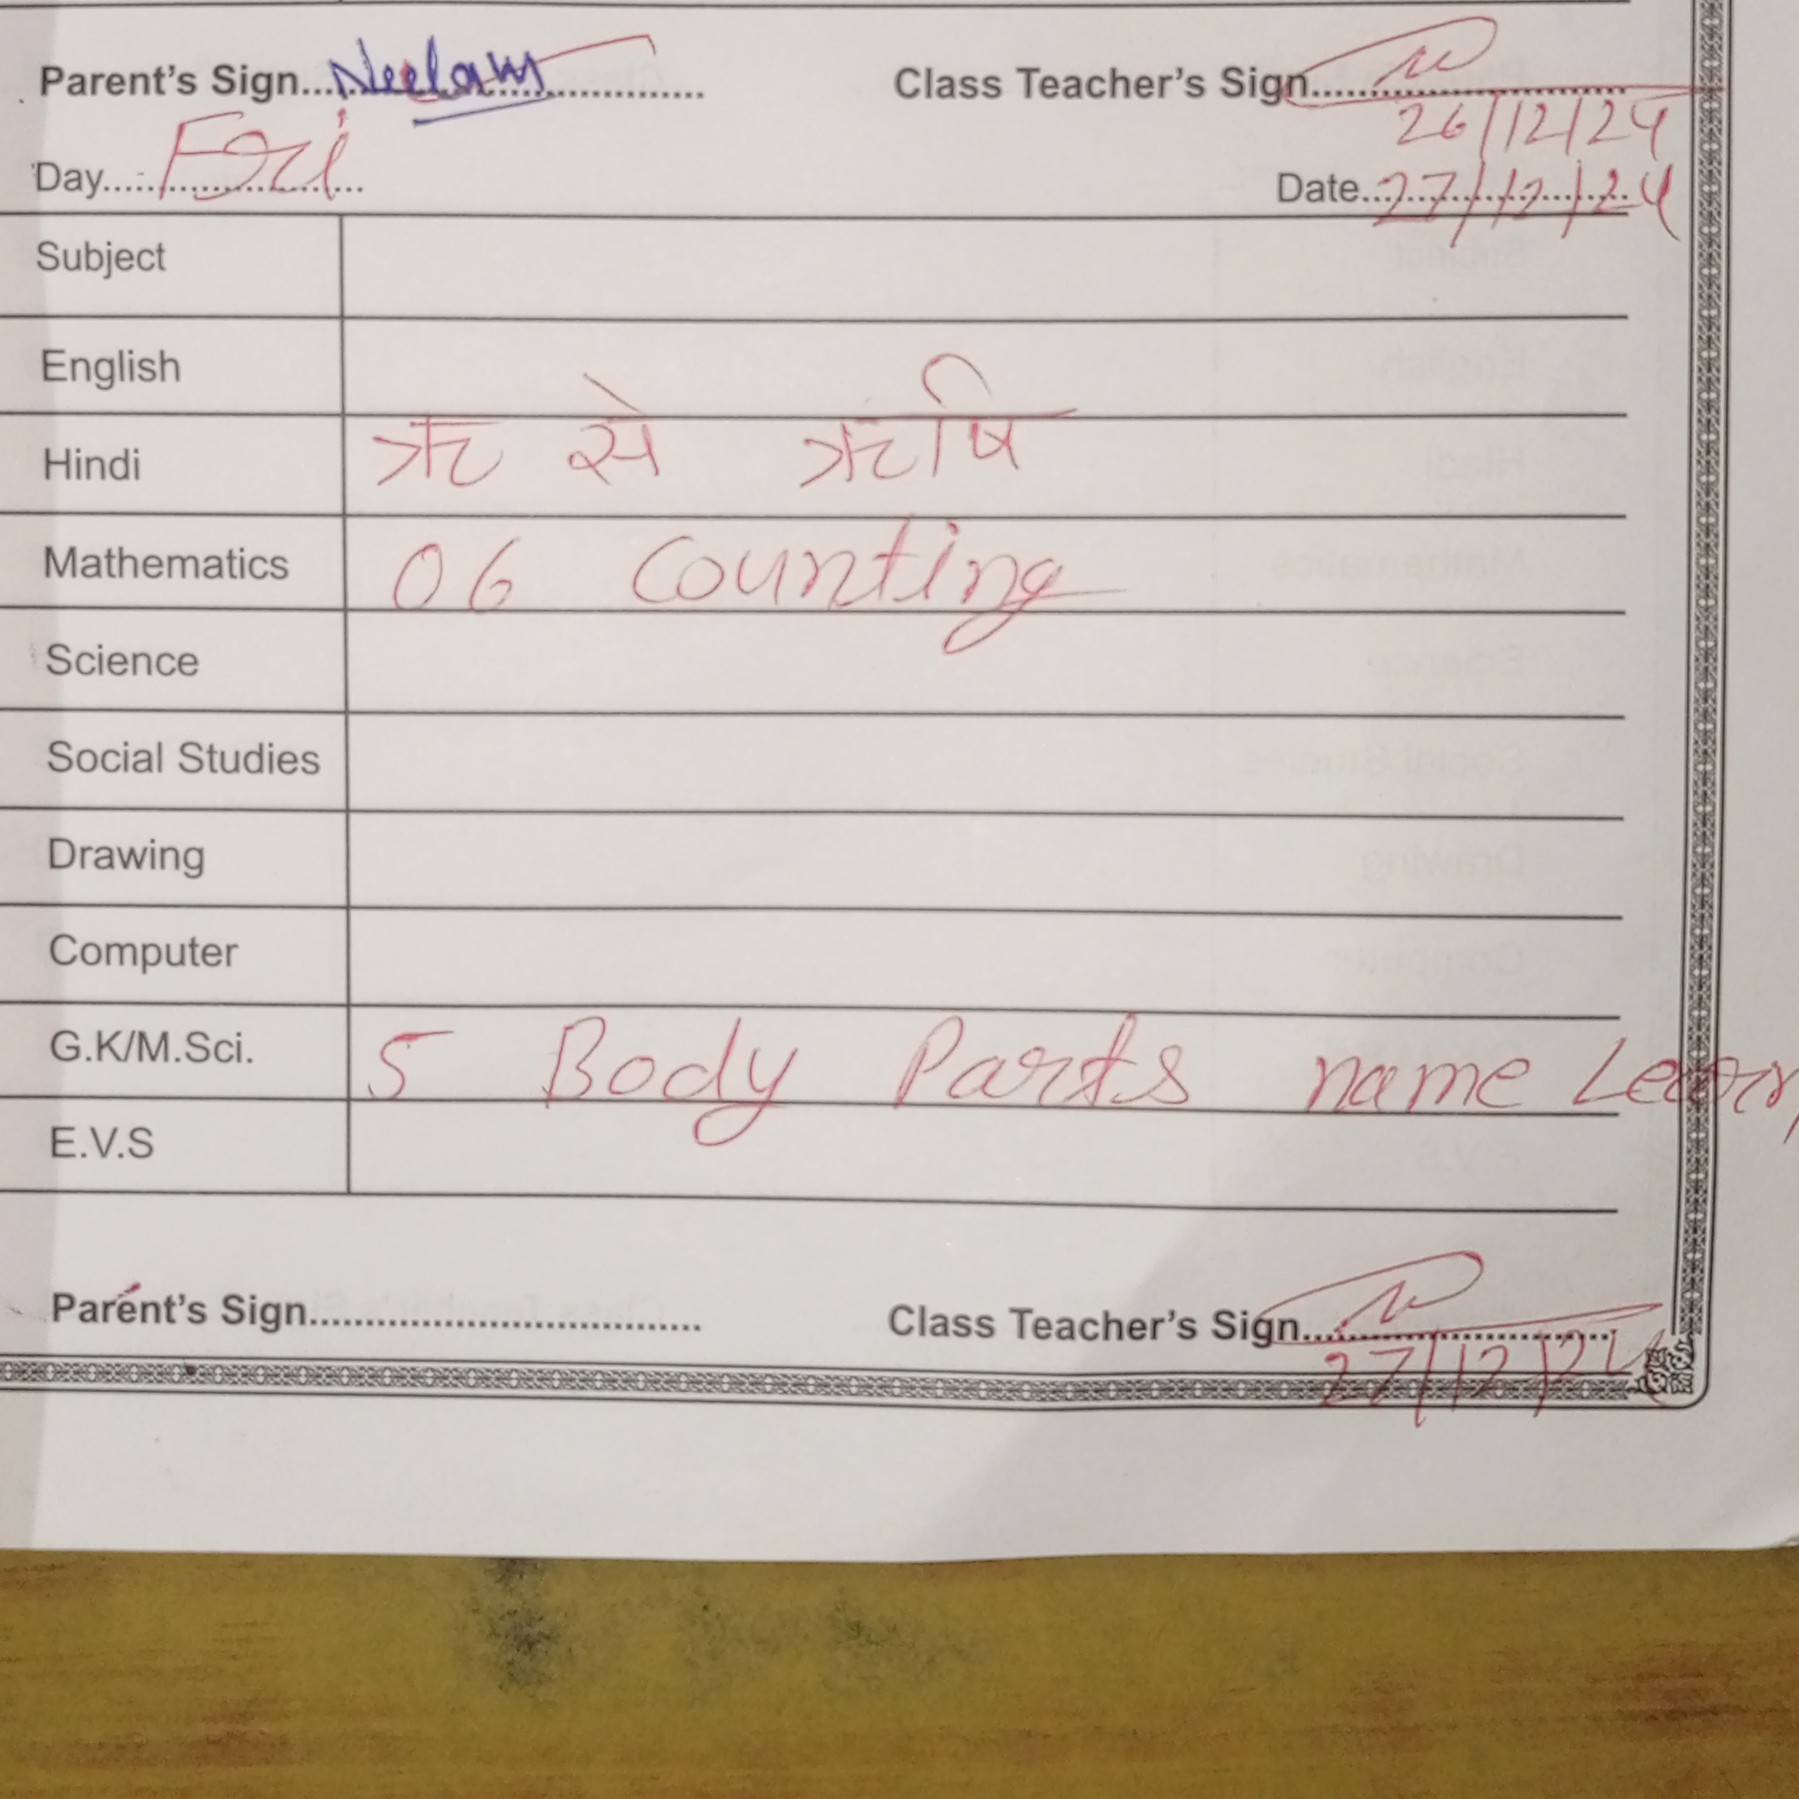 Parent's Sign...Neelam................ Class Teacher's Sign............................
26/12/24
Day.....Fri.................... Date...27/12/24
Subject
English
Hindi ऋ से ऋषि
Mathematics 06 Counting
Science
Social Studies
Drawing
Computer
G.K/M.Sci. 5 Body Parts name Learn
E.V.S
Parent's Sign................................... Class Teacher's Sign............................
27/12/24